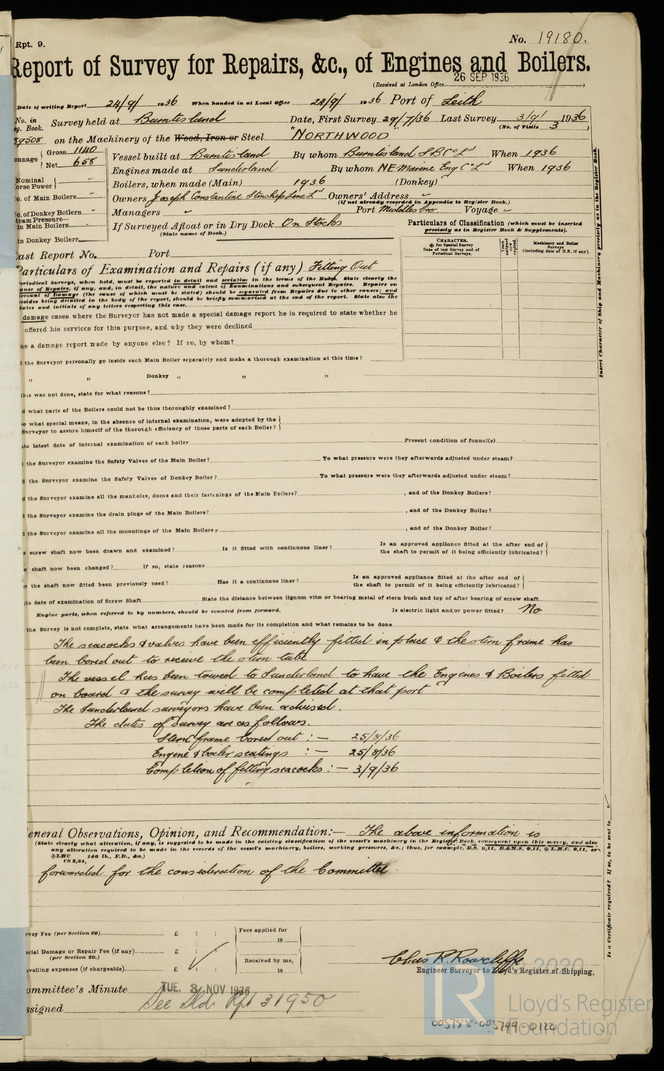 Rpt. 9.
No. 19180.
Report of Survey for Repairs, &c., of Engines and Boilers.
(Received at London Office 26 SEP 1936
Date of writing Report 24/9/ 1936 When handed in at Local Office 24/9/ 1936 Port of Leith
No. in Survey held at Burntisland Date, First Survey 29/7/36 Last Survey 3/9/ 1936
Reg. Book. (No. of Visits 3
89508 on the Machinery of the Wood, Iron or Steel "NORTHWOOD
Tonnage Gross 1140
Net 658
Vessel built at Burntisland By whom Burntisland S.B. Co Ld When 1936
Engines made at Sunderland By whom NE Marine Eng Co Ld When 1936
Nominal Horse Power Boilers, when made (Main) 1936 (Donkey)
No. of Main Boilers Owners Joseph Constantine Steamship Line Ld Owners' Address
(if not already recorded in Appendix to Register Book.)
No. of Donkey Boilers Managers Port Middlesbro Voyage
Steam Pressure
in Main Boilers If Surveyed Afloat or in Dry Dock On Stocks
(State name of Dock.)
in Donkey Boilers
Particulars of Classification (which must be inserted
precisely as in Register Book & Supplements).
CHARACTER.
Last Report No. Port
Particulars of Examination and Repairs (if any) Fitting Out
damage cases where the Surveyor has not made a special damage report he is required to state whether he
offered his services for this purpose, and why they were declined
was a damage report made by anyone else? If so, by whom?
the Surveyor personally go inside each Main Boiler separately and make a thorough examination at this time?
" " Donkey " " "
this was not done, state for what reasons?
what parts of the Boilers could not be thus thoroughly examined?
what special means, in the absence of internal examination, were adopted by the
Surveyor to assure himself of the thorough efficiency of those parts of each Boiler?
latest date of internal examination of each boiler Present condition of funnel(s)
the Surveyor examine the Safety Valves of the Main Boiler? To what pressure were they afterwards adjusted under steam?
the Surveyor examine the Safety Valves of Donkey Boiler? To what pressure were they afterwards adjusted under steam?
the Surveyor examine all the manholes, doors and their fastenings of the Main Boilers? , and of the Donkey Boiler?
the Surveyor examine the drain plugs of the Main Boiler? , and of the Donkey Boiler?
the Surveyor examine all the mountings of the Main Boilers? , and of the Donkey Boiler?
screw shaft now been drawn and examined? Is it fitted with continuous liner? Is an approved appliance fitted at the after end of
the shaft to permit of it being efficiently lubricated?
shaft now been changed? If so, state reasons
the shaft now fitted been previously used? Has it a continuous liner? Is an approved appliance fitted at the after end of
the shaft to permit of it being efficiently lubricated?
date of examination of Screw Shaft State the distance between lignum vitæ or bearing metal of stern bush and top of after bearing of screw shaft
Engine parts, when referred to by numbers, should be counted from forward. Is electric light and/or power fitted? No
the Survey is not complete, state what arrangements have been made for its completion and what remains to be done
The seacocks & valves have been efficiently fitted in place & the stern frame has
been bored out to receive the stern tube
The vessel has been towed to Sunderland to have the Engines & Boilers fitted
on board & the survey will be completed at that port
The Sunderland surveyors have been advised.
The dates of survey are as follows.
Stern frame bored out :- 25/8/36
Engine & boiler seatings :- 25/8/36
Completion of fitting seacocks :- 3/9/36
General Observations, Opinion, and Recommendation:- The above information is
(State clearly what alteration, if any, is suggested to be made in the existing classification of the vessel's machinery in the Register Book, consequent upon this survey, and also
any alteration required to be made in the records of the vessel's machinery, boilers, working pressures, &c.)
forwarded for the consideration of the Committee
Survey Fee (per Section 29) £ : :
Special Damage or Repair Fee (if any) £ : :
(per Section 29.)
Travelling expenses (if chargeable) £ : :
Fees applied for
19
Received by me,
19
Chas R. Rowcliffe
Engineer Surveyor to Lloyd's Register of Shipping.
Committee's Minute TUE. 3 NOV 1936
Assigned See Sld Rpt 31950
© 2020
LR
Lloyd's Register
Foundation
005788-005799-0120
Insert Character of Ship and Machinery precisely as in the Register Book.
Is a Certificate required? If so, to be sent to